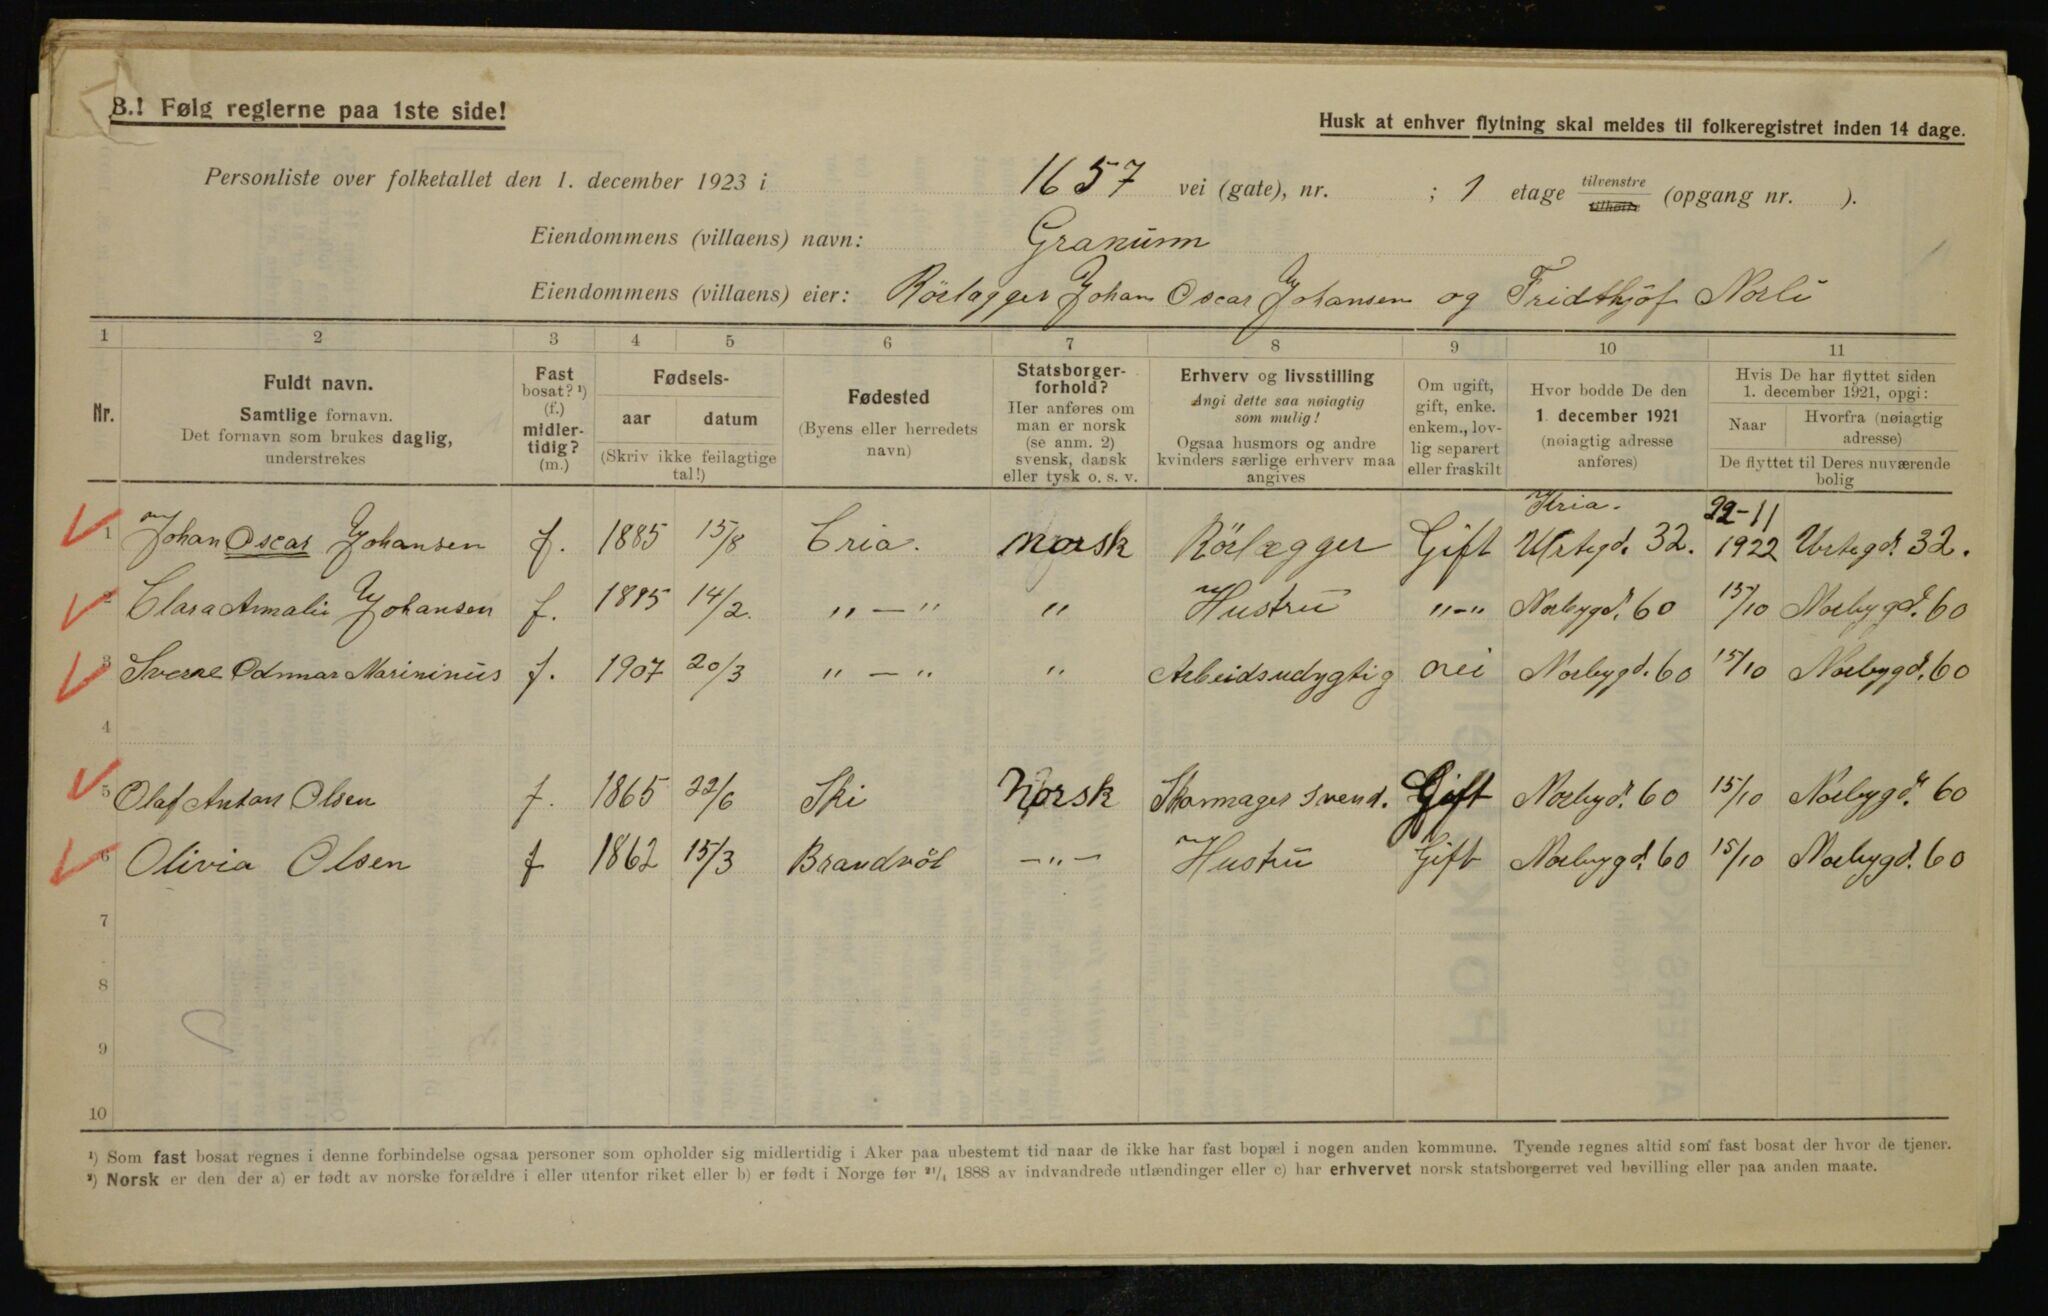 B.! Følg reglerne paa 1ste side!
Husk at enhver flytning skal meldes til folkeregistret inden 14 dage.
Personliste over folketallet den 1. december 1923 i 1657 vei (gate), nr. ; 1 etage tilvenstre tilhøire (opgang nr. ).
Eiendommens (villaens) navn: Granum
Eiendommens (villaens) eier: Rörlægger Johan Oscar Johansen og Fridthjof Norli
1 2 3 4 5 6 7 8 9 10 11
Nr.
Fuldt navn.
Samtlige fornavn.
Det fornavn som brukes daglig,
understrekes
Fast
bosat? ¹)
(f.)
midler-
tidig?
(m.)
Fødsels-
aar datum
(Skriv ikke feilagtige
tal!)
Fødested
(Byens eller herredets
navn)
Statsborger-
forhold?
Her anføres om
man er norsk
(se anm. 2)
svensk, dansk
eller tysk o. s. v.
Erhverv og livsstilling
Angi dette saa nøiagtig
som mulig!
Ogsaa husmors og andre
kvinders særlige erhverv maa
angives
Om ugift,
gift, enke.
enkem., lov-
lig separert
eller fraskilt
Hvor bodde De den
1. december 1921
(nøiagtig adresse
anføres)
Hvis De har flyttet siden
1. december 1921, opgi:
Naar Hvorfra (nøiagtig
adresse)
De flyttet til Deres nuværende
bolig
Kria. 22-11
1 Johan Oscar Johansen f. 1885 15/8 Cria. Norsk Rörlægger Gift Urtegd. 32. 1922 Urtegd. 32.
2 Clara Amalie Johansen f. 1895 14/2. " — " " Hustru "—" Norbygd. 60 15/10 Norbygd. 60
3 Sverre Odmar Marininus f. 1907 20/3 " — " " Arbeidsudygtig nei Norbygd. 60 15/10 Norbygd. 60
4
5 Olaf Anton Olsen f. 1865 22/6 Ski Norsk Skomager svend. Gift Norbygd. 60 15/10 Norbygd. 60
6 Olivia Olsen f 1862 15/3 Brandvöl —"— Hustru Gift Norbygd. 60 15/10 Norbygd. 60
7
8
9
10
¹) Som fast bosat regnes i denne forbindelse ogsaa personer som opholder sig midlertidig i Aker paa ubestemt tid naar de ikke har fast bopæl i nogen anden kommune. Tyende regnes altid som fast bosat der hvor de tjener.
²) Norsk er den der a) er født av norske forældre i eller utenfor riket eller b) er født i Norge før ²¹/₄ 1888 av indvandrede utlændinger eller c) har erhvervet norsk statsborgerret ved bevilling eller paa anden maate.